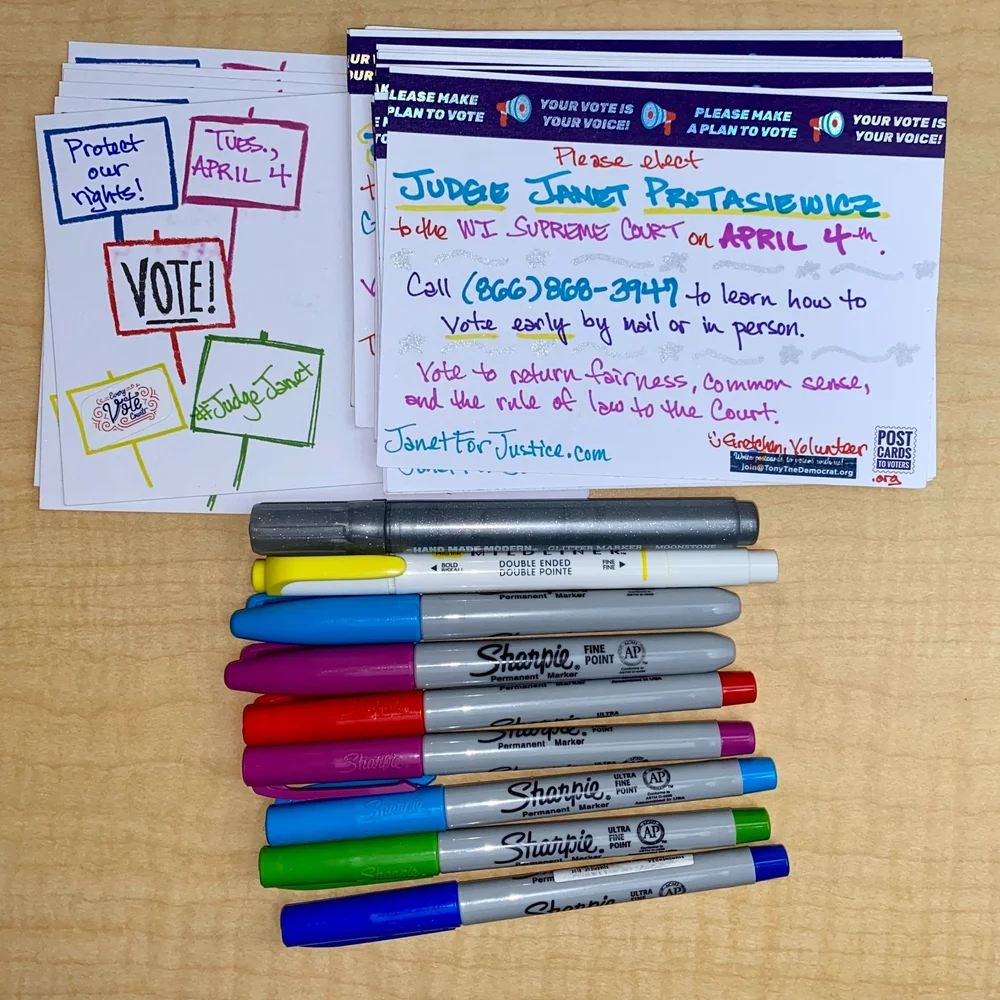 Protect
our
rights!
TUES.,
APRIL 4
VOTE!
Every
Vote
Counts
#JudgeJanet
PLEASE MAKE
PLAN TO VOTE
YOUR VOTE IS
YOUR VOICE!
PLEASE MAKE
A PLAN TO VOTE
YOUR VOTE IS
YOUR VOICE!
Please elect
JUDGE JANET PROTASIEWICZ
to the WI SUPREME COURT on APRIL 4th.
Call (866)868-3947 to learn how to
vote early by mail or in person.
Vote to return fairness, common sense,
and the rule of law to the Court.
JanetForJustice.com
Gretchen, Volunteer
Write postcards to voters with us!
Join@TonyTheDemocrat.org
POST
CARDS
TO VOTERS
.org
HAND MADE MODERN GLITTER MARKER MOONSTONE
MILDLINER
BOLD
DOUBLE ENDED
DOUBLE POINTE
FINE
FINE
Permanent Marker
Sharpie. FINE
POINT
AP
Permanent Marker
Permanent Marker
Sharpie. ULTRA
POINT
Sharpie
Permanent Marker
Sharpie
Sharpie. ULTRA
FINE
POINT
AP
Permanent Marker
Sharpie
Sharpie. ULTRA
FINE
POINT
AP
Permanent Marker
Sharpie ULTRA
FINE
AP